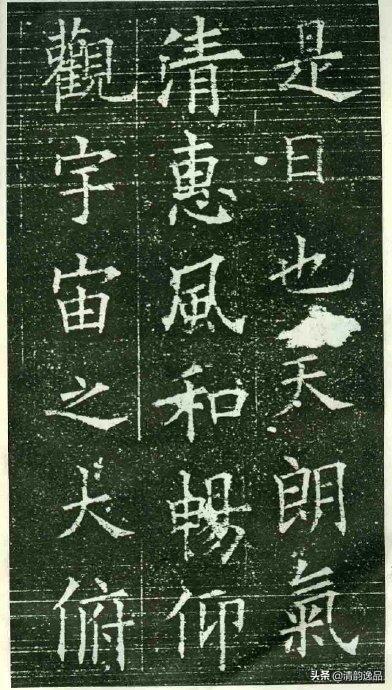 是日也天朗氣
清惠風和暢仰
觀宇宙之大俯
头条 @清韵逸品